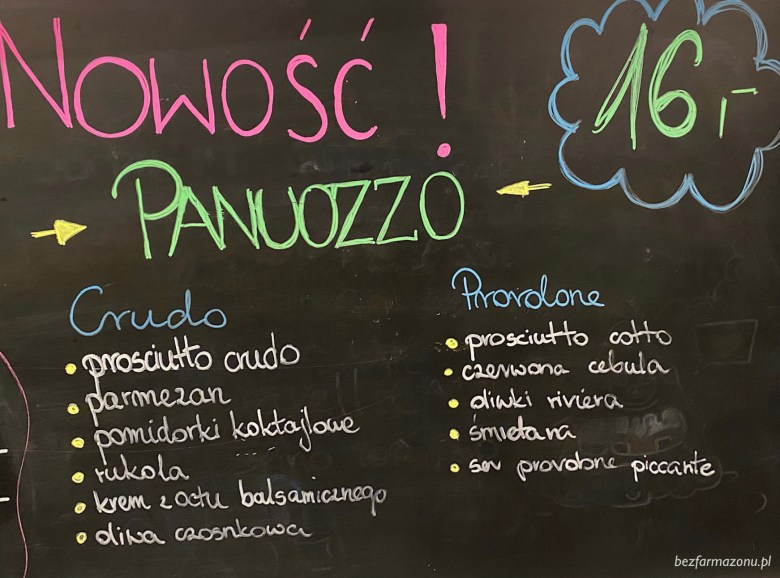 NOWOŚĆ!
16,-
PANUOZZO
Crudo
prosciutto crudo
parmezan
pomidorki koktajlowe
rukola
krem z octu balsamicznego
oliwa czosnkowa
Provolone
prosciutto cotto
czerwona cebula
oliwki riviera
śmietana
ser provolone piccante
bezfarmazonu.pl